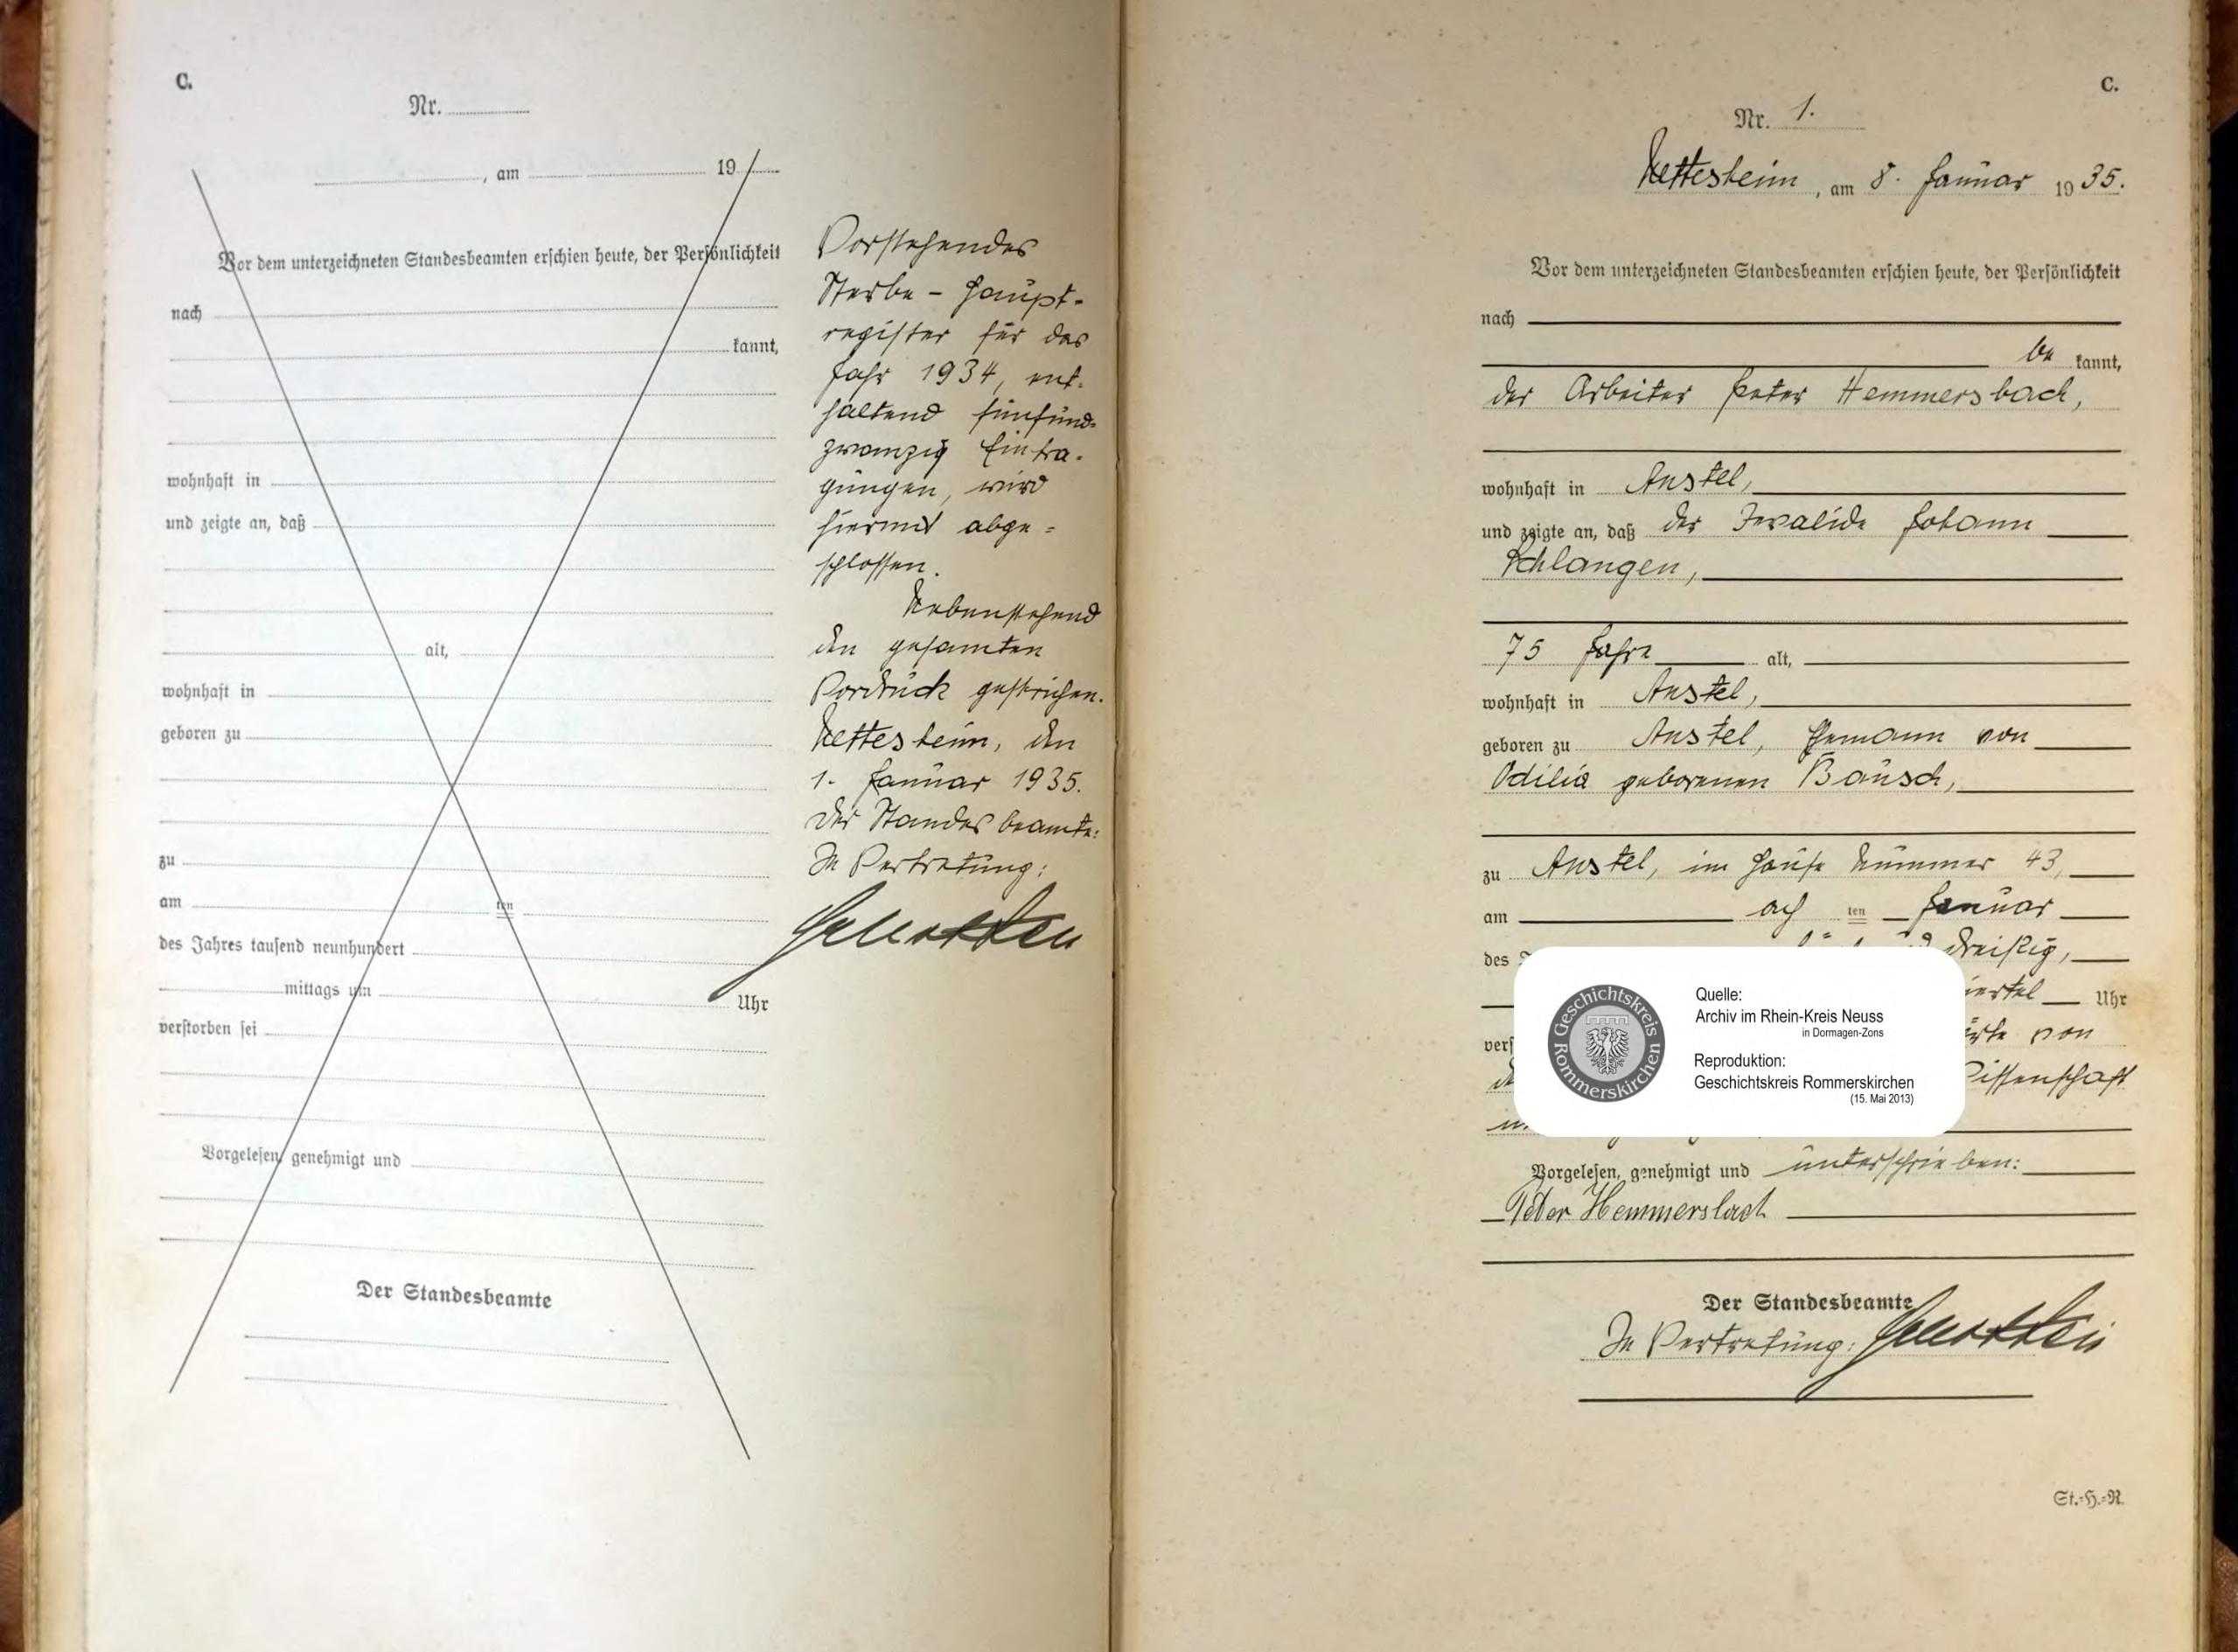 C.
Nr.
, am 19
Vor dem unterzeichneten Standesbeamten erschien heute, der Persönlichkeit
nach
kannt,
wohnhaft in
und zeigte an, daß
alt,
wohnhaft in
geboren zu
zu
am ten
des Jahres tausend neunhundert
mittags um Uhr
verstorben sei
Vorgelesen, genehmigt und
Der Standesbeamte
Vorstehendes
Sterbe-Haupt-
register für das
Jahr 1934, ent-
haltend fünfund-
zwanzig Eintra-
gungen, wird
hiermit abge-
schlossen.
Nebenstehend
den gesamten
Vordruck gestrichen.
Nettesheim, den
1. Januar 1935.
Der Standesbeamte:
In Vertretung:
C.
Nr. 1.
Nettesheim, am 8. Januar 1935.
Vor dem unterzeichneten Standesbeamten erschien heute, der Persönlichkeit
nach
be kannt,
der Arbeiter Peter Hemmersbach,
wohnhaft in Anstel,
und zeigte an, daß der Invalide Johann
Schlangen,
75 Jahre alt,
wohnhaft in Anstel,
geboren zu Anstel, Ehemann von
Odilia geborenen Bausch,
zu Anstel, im Hause Nummer 43,
am ach ten Januar
des dreißig,
Uhr
von
Vorgelesen, genehmigt und unterschrieben:
Peter Hemmersbach
Der Standesbeamte
In Vertretung:
St.-H.-R.
Geschichtskreis Rommerskirchen
Quelle:
Archiv im Rhein-Kreis Neuss
in Dormagen-Zons
Reproduktion:
Geschichtskreis Rommerskirchen
(15. Mai 2013)